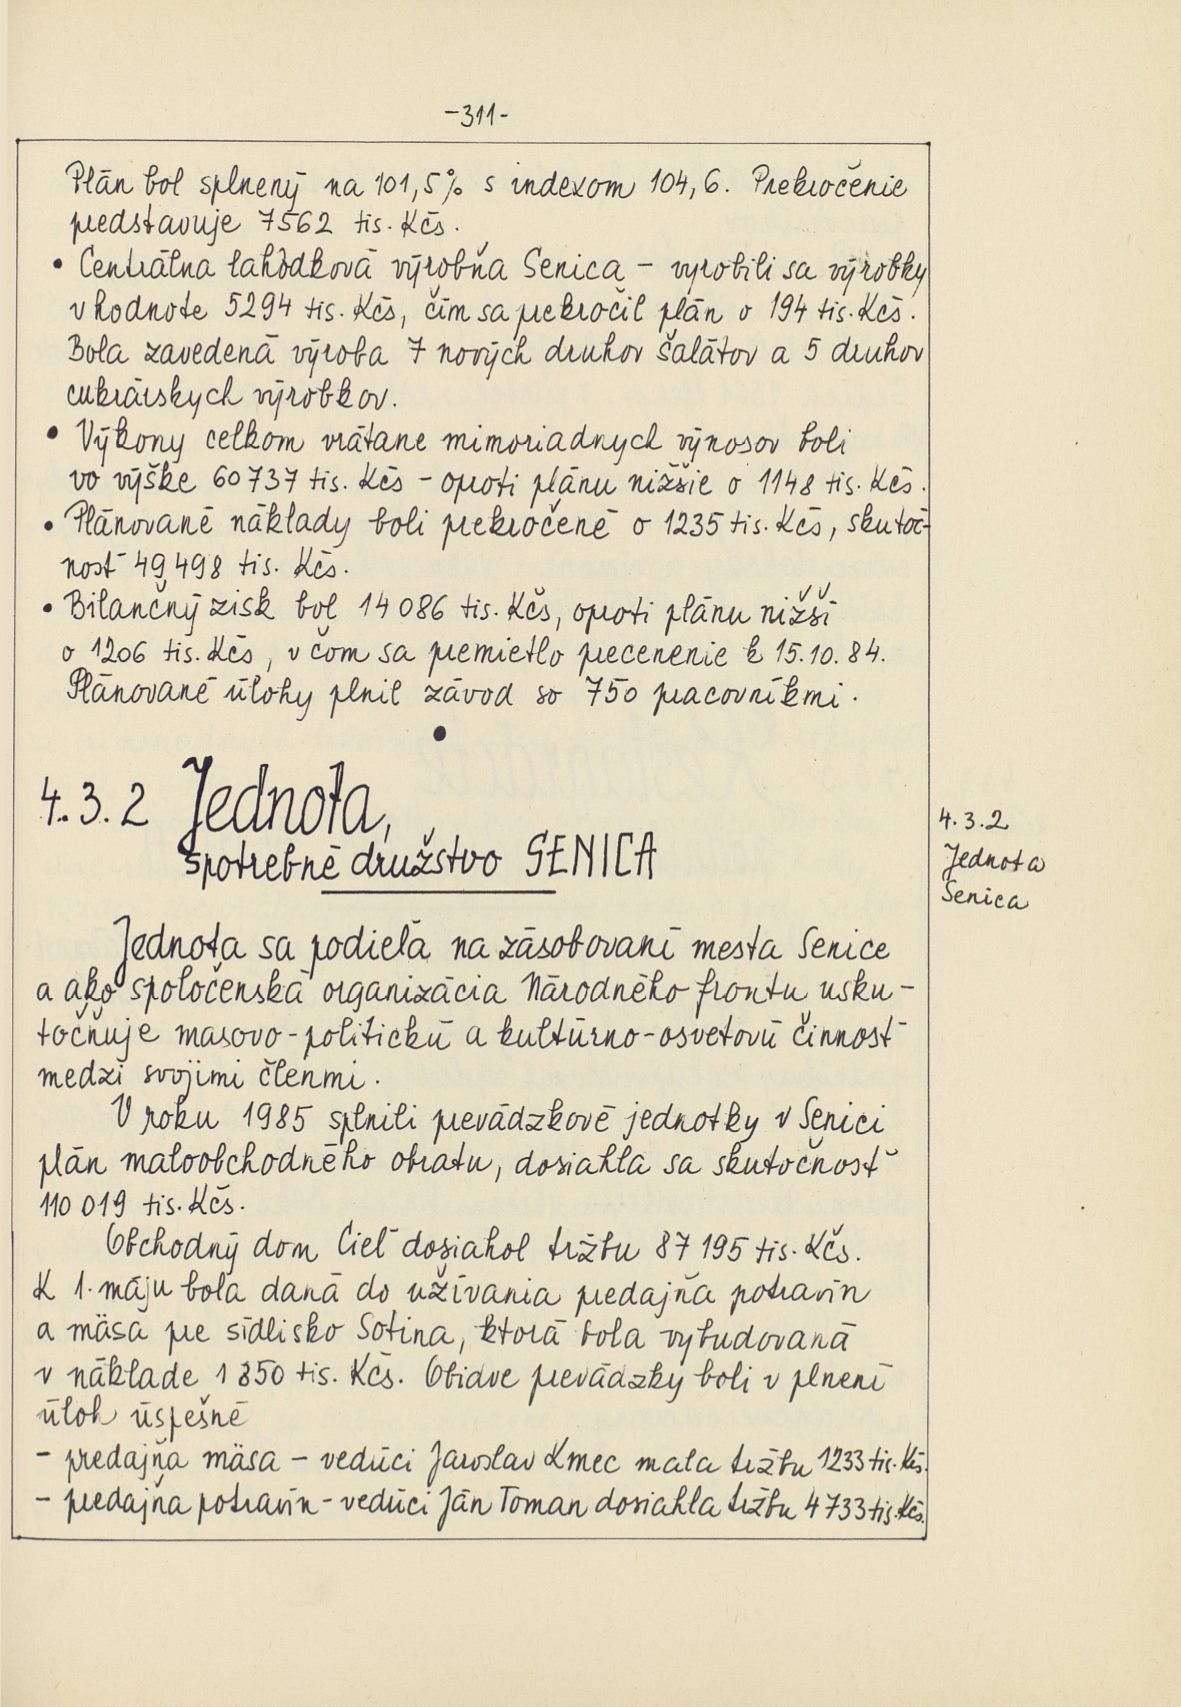 -311-
Plán bol splnený na 101,5% s indexom 104,6. Prekročenie
predstavuje 7562 tis. Kčs.
• Centrálna lahôdková výrobňa Senica - vyrobili sa výrobky
v hodnote 5294 tis. Kčs, čím sa prekročil plán o 194 tis. Kčs.
Bola zavedená výroba 7 nových druhov šalátov a 5 druhov
cukrárskych výrobkov.
• Výkony celkom vrátane mimoriadnych výnosov boli
vo výške 60 737 tis. Kčs - oproti plánu nižšie o 1148 tis. Kčs.
• Plánované náklady boli prekročené o 1235 tis. Kčs, skutoč-
nosť 49 498 tis. Kčs.
• Bilančný zisk bol 14 086 tis. Kčs, oproti plánu nižší
o 1206 tis. Kčs, v čom sa premietlo precenenie k 15.10.84.
Plánované úlohy plnil závod so 750 pracovníkmi.
4.3.2 Jednota,
spotrebné družstvo SENICA
4.3.2
Jednota
Senica
Jednota sa podieľa na zásobovaní mesta Senice
a ako spoločenská organizácia Národného frontu usku-
točňuje masovo-politickú a kultúrno-osvetovú činnosť
medzi svojimi členmi.
V roku 1985 splnili prevádzkové jednotky v Senici
plán maloobchodného obratu, dosiahla sa skutočnosť
110 019 tis. Kčs.
Obchodný dom Cieľ dosiahol tržbu 87 195 tis. Kčs.
K 1. máju bola daná do užívania predajňa potravín
a mäsa pre sídlisko Sotina, ktorá bola vybudovaná
v náklade 1 850 tis. Kčs. Obidve prevádzky boli v plnení
úloh úspešné
- predajňa mäsa - vedúci Jaroslav Kmec mala tržbu 1233 tis. Kčs.
- predajňa potravín - vedúci Ján Toman dosiahla tržbu 4 733 tis. Kčs.